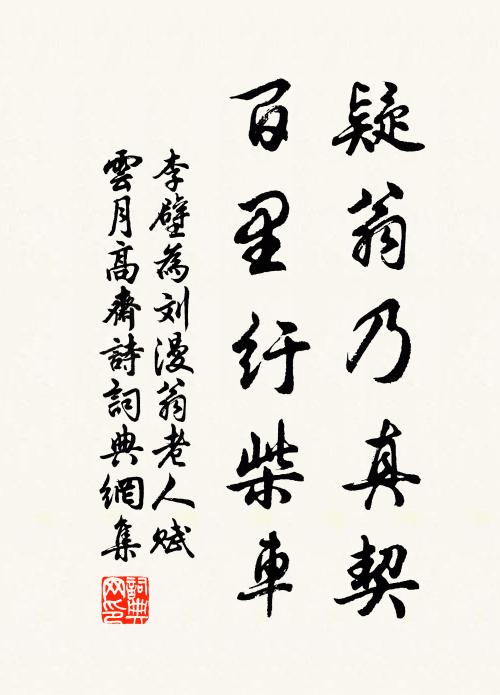 疑翁乃真契
百里纡柴車
李壁為刘漫翁老人賦
雲月高齋詩詞典網集
詞典網印